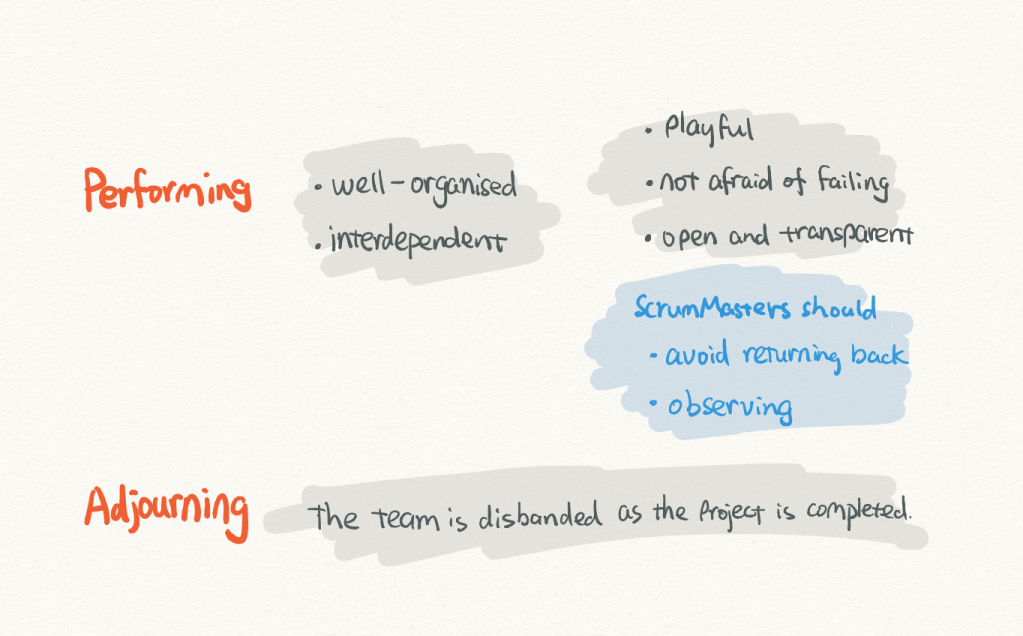 Performing
• well-organised
• interdependent
• Playful
• not afraid of failing
• open and transparent
ScrumMasters should
• avoid returning back
• observing
Adjourning
The team is disbanded as the Project is completed.